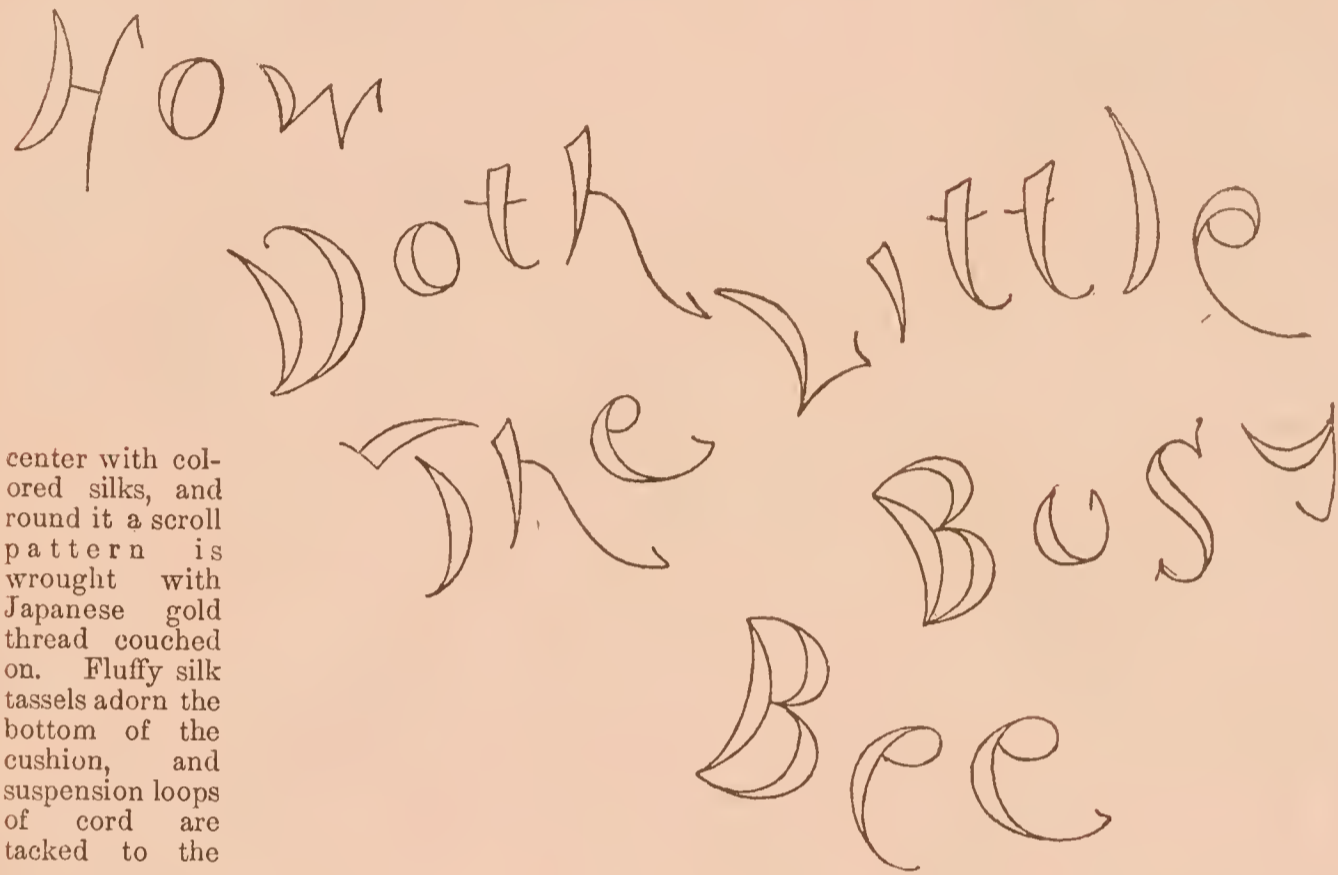 How
Doth
The
Little
Busy
Bee
center with col-
ored silks, and
round it a scroll
pattern is
wrought with
Japanese gold
thread couched
on. Fluffy silk
tassels adorn the
bottom of the
cushion, and
suspension loops
of cord are
tacked to the